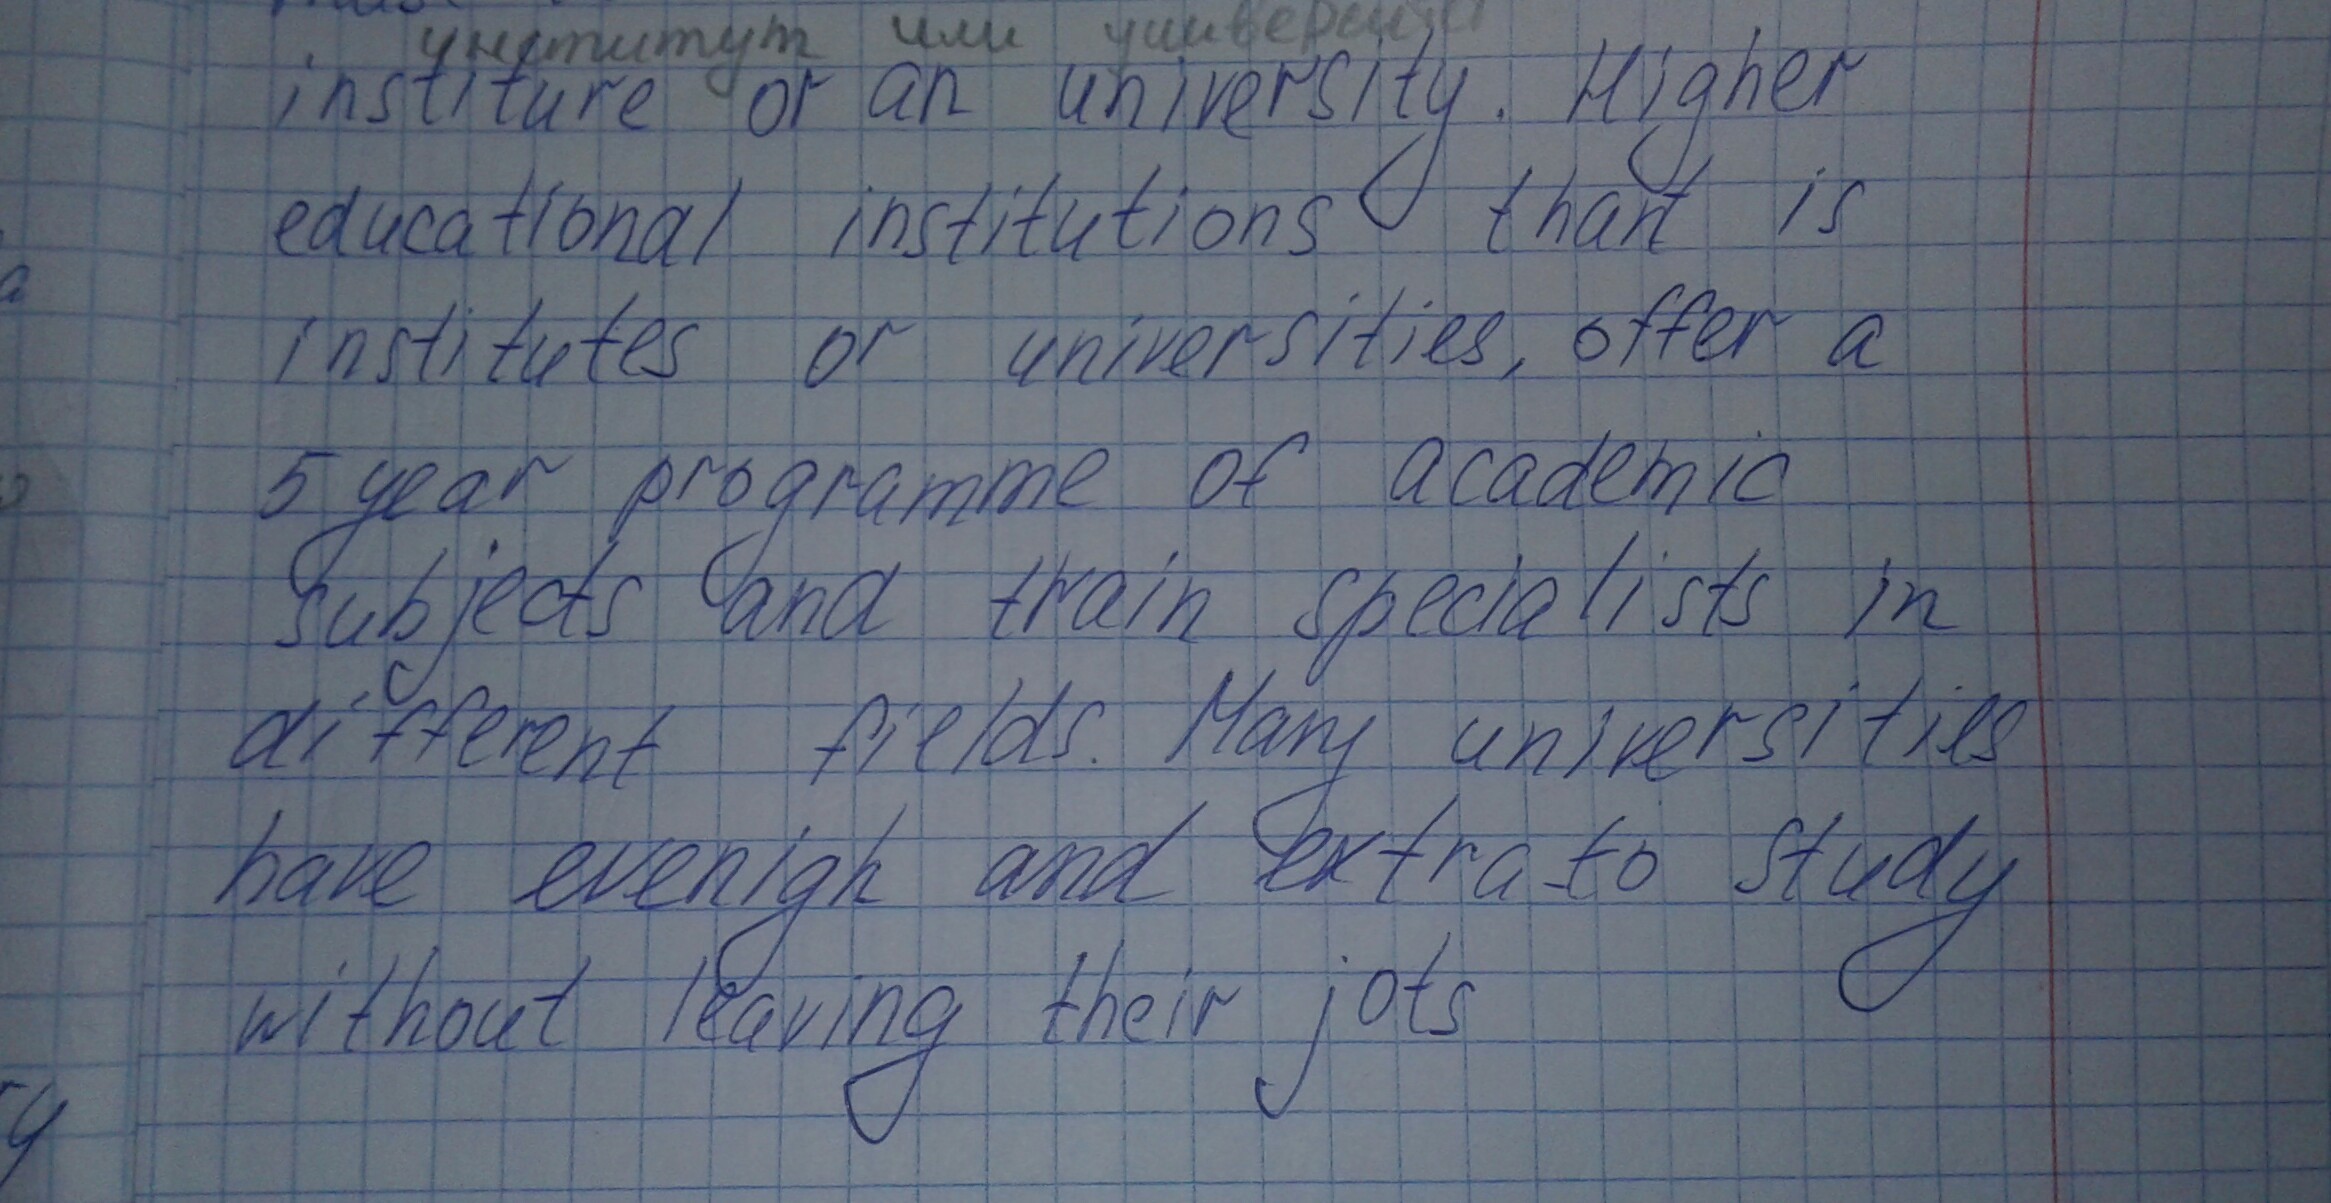 институт или универси
institure or an university. Higher
educational institutions than is
institutes or universities, offer a
5 year programme of academic
subjects and train specialists in
different fields. Many universities
have evenigh and extra to study
without leaving their jots